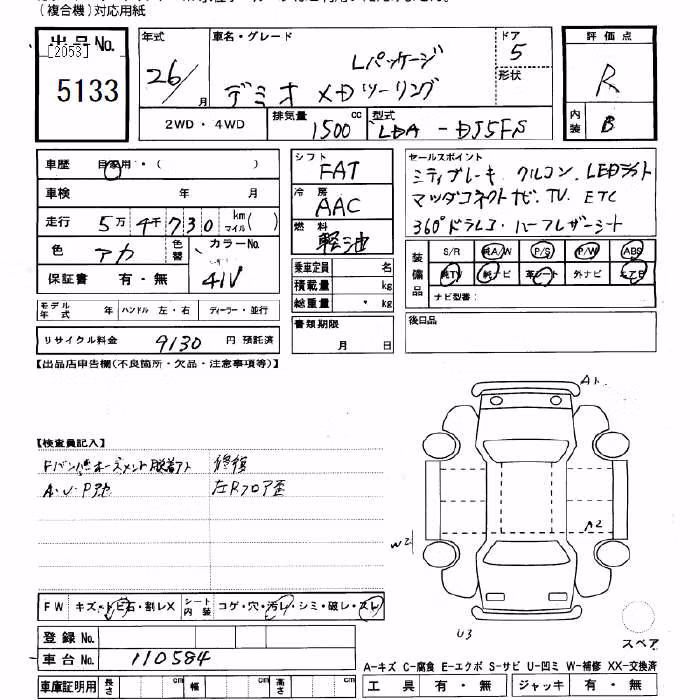 (複合機)対応用紙
出品No.
[2053]
5133
年式
26/
月
車名・グレード
Lパッケージ
デミオ XDツーリング
ドア
5
形状
2WD・4WD
排気量
1500 cc
型式
LDA - DJ5FS
評価点
R
内装
B
車歴 自家用・( )
車検 年 月
走行 5万4千730 km マイル( )
色 アカ 色替 カラーNo. 41V
保証書 有・無
モデル年式 年 ハンドル 左・右 ディーラー・並行
リサイクル料金 9130 円 預託済
シフト
FAT
冷房
AAC
燃料
軽油
乗車定員 名
積載量 kg
総重量 kg
書類期限
月 日
セールスポイント
シティブレーキ. クルコン. LEDライト
マツダコネクトナビ. TV. ETC
360°ドラレコ・ハーフレザーシート
装備品
S/R 純A/W P/S P/W ABS
純TV 純ナビ 革シート 外ナビ エアB
ナビ型番:
後日品
【出品店申告欄(不良箇所・欠品・注意事項等)】
【検査員記入】
修復
A・U・P
左Rフロア歪
A1
A2
W2
U3
スペア
FW キズ・トビ石・割レX シート内装 コゲ・穴・汚レ・シミ・破レ・スレ
登録No.
車台No. 110584
車庫証明用 長さ cm 幅 cm 高さ cm
A-キズ C-腐食 E-エクボ S-サビ U-凹ミ W-補修 XX-交換済
工具 有・無 ジャッキ 有・無